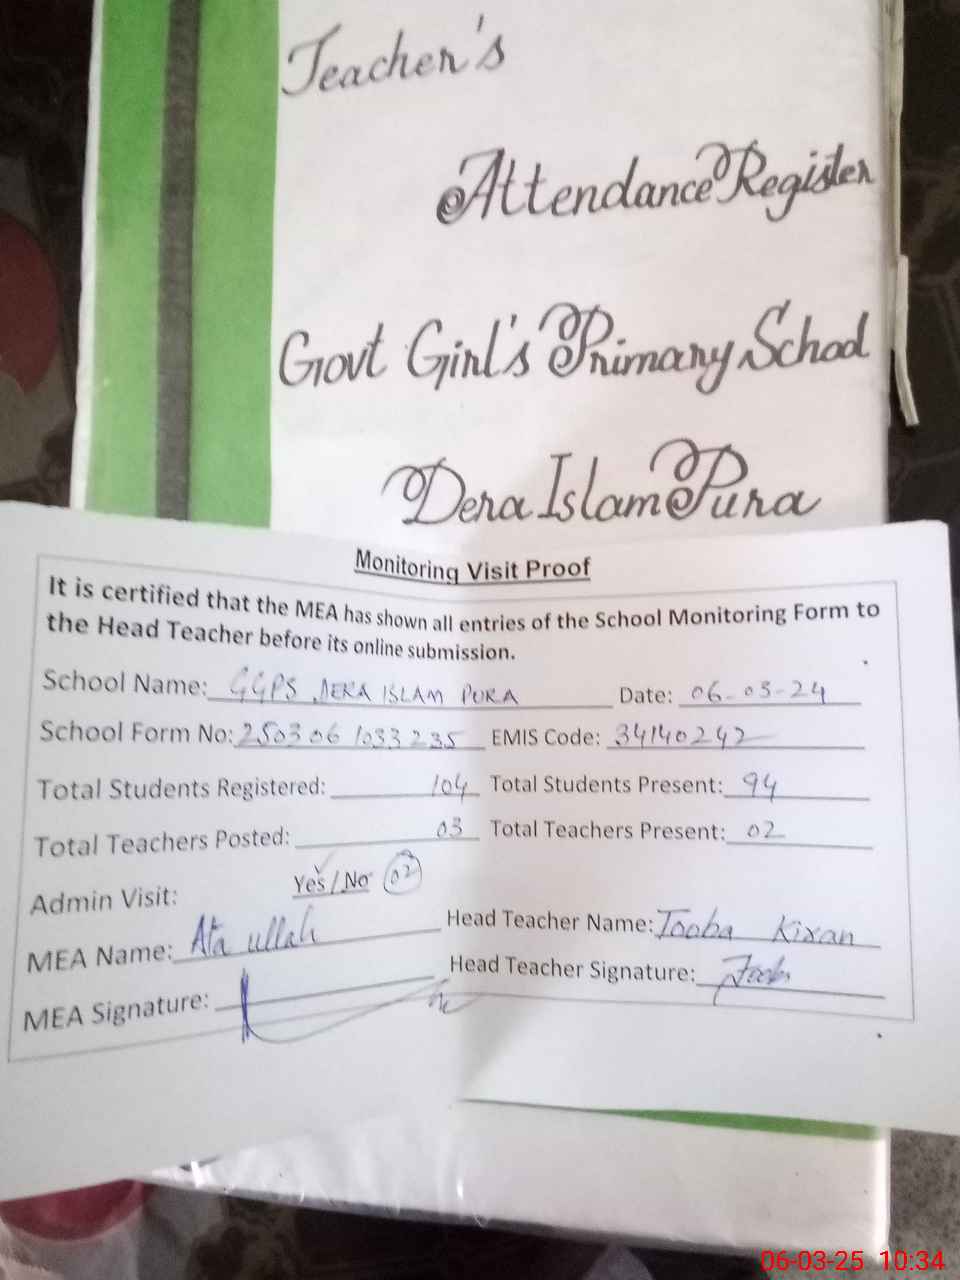 Teacher's
Attendance Register
Govt Girl's Primary School
Dera Islam Pura
Monitoring Visit Proof
It is certified that the MEA has shown all entries of the School Monitoring Form to
the Head Teacher before its online submission.
School Name: GGPS DERA ISLAM PURA Date: 06-03-24
School Form No: 250306 1033235 EMIS Code: 34140242
Total Students Registered: 104 Total Students Present: 94
Total Teachers Posted: 03 Total Teachers Present: 02
Admin Visit: Yes / No 02
MEA Name: Ata ullah Head Teacher Name: Tooba Kiran
MEA Signature: Head Teacher Signature:
06-03-25 10:34